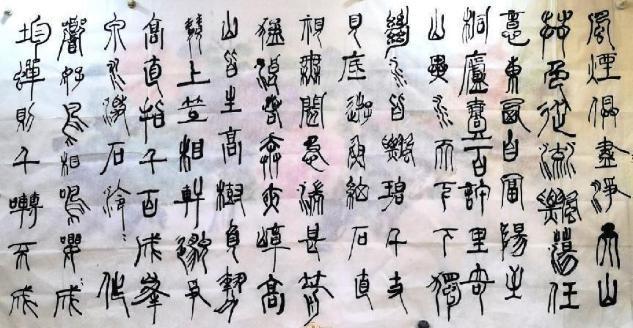 風煙俱盡淨天山
共色從流飄蕩任
意東西自富陽至
桐廬壹百許里奇
山異水天下獨
絕水皆縹碧千丈
見底遊魚細石直
視無閡急湍甚箭
猛浪若奔夾嶂高
山皆生高樹負勢
競上互相軒邈爭
高直指千百成峰
泉水激石泠〻作
響好鳥相鳴嚶〻成
均蟬則千囀不成